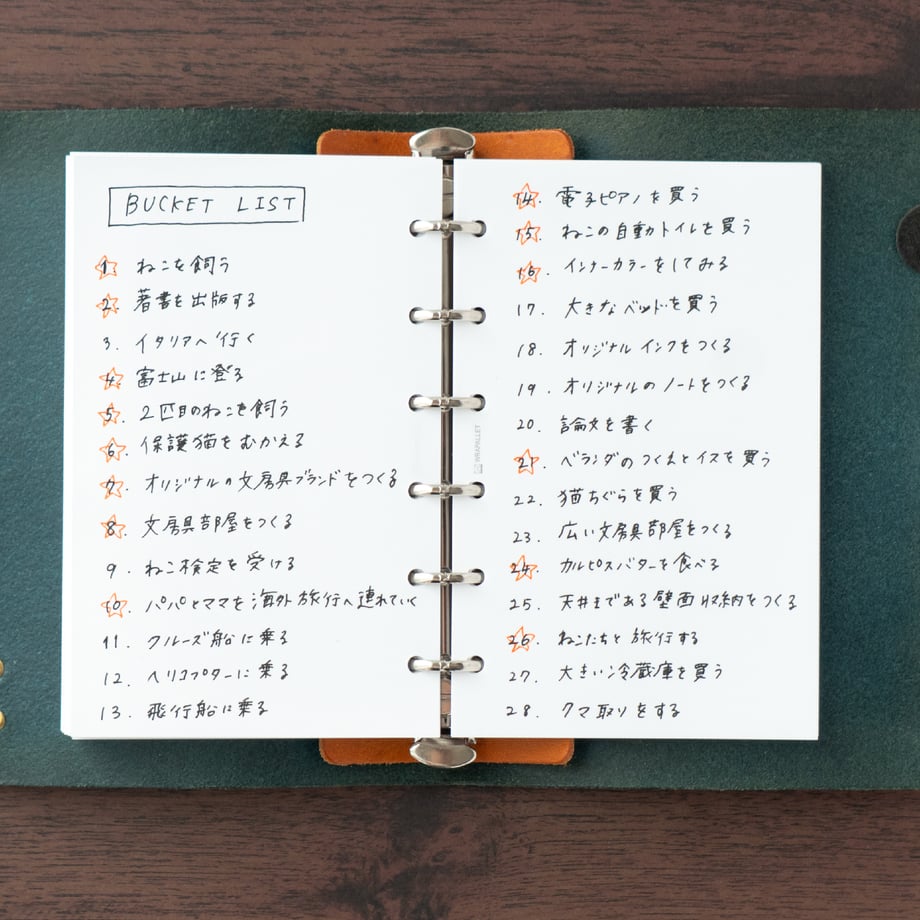 BUCKET LIST
1. ねこを飼う
2. 著書を出版する
3. イタリアへ行く
4. 富士山に登る
5. 2匹目のねこを飼う
6. 保護猫をむかえる
7. オリジナルの文房具ブランドをつくる
8. 文房具部屋をつくる
9. ねこ検定を受ける
10. パパとママを海外旅行へ連れていく
11. クルーズ船に乗る
12. ヘリコプターに乗る
13. 飛行船に乗る
14. 電子ピアノを買う
15. ねこの自動トイレを買う
16. インナーカラーをしてみる
17. 大きなベッドを買う
18. オリジナルインクをつくる
19. オリジナルのノートをつくる
20. 論文を書く
21. ベランダのつくえとイスを買う
22. 猫ちぐらを買う
23. 広い文房具部屋をつくる
24. カルピスバターを食べる
25. 天井まである壁面収納をつくる
26. ねこたちと旅行する
27. 大きい冷蔵庫を買う
28. クマ取りをする
WRAPALLET